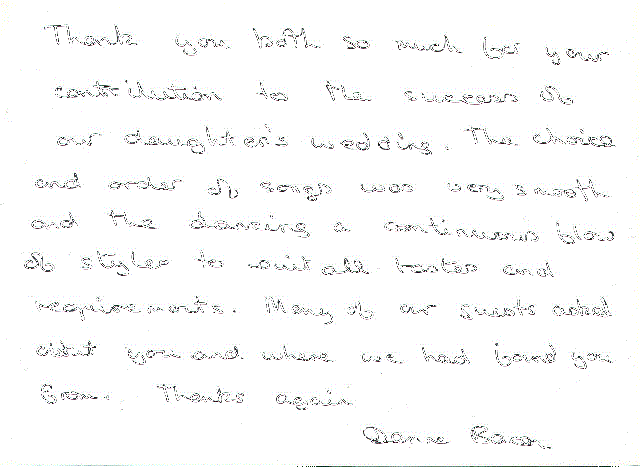 Thank you both so much for your
contribution to the success of
our daughter's wedding. The choice
and order of songs was very smooth
and the dancing a continuous flow
of styles to suit all tastes and
requirements. Many of our guests asked
about you and where we had found you
from. Thanks again
Dianne Bacon